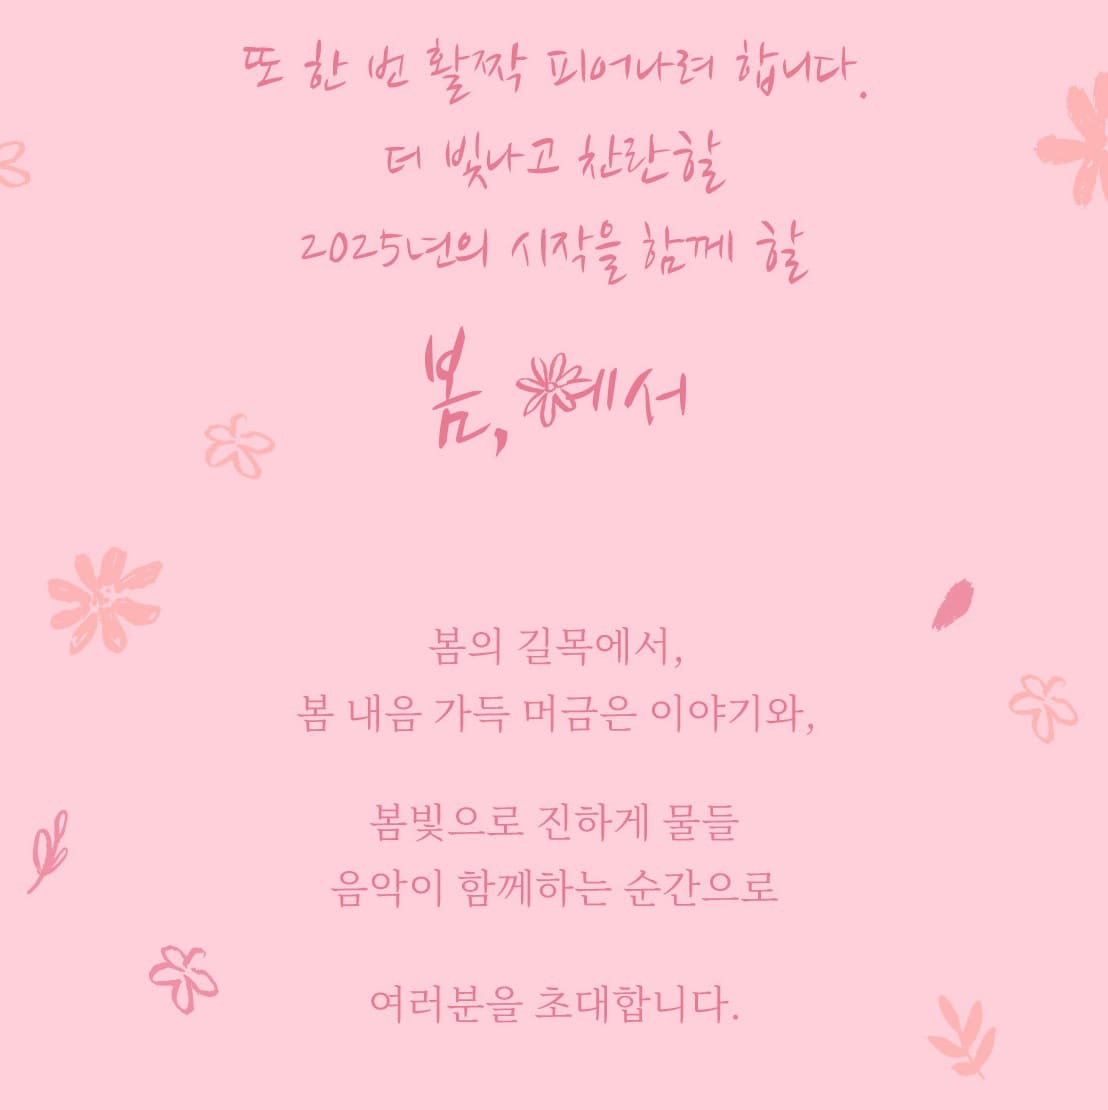 또 한 번 활짝 피어나려 합니다.
더 빛나고 찬란할
2025년의 시작을 함께 할
봄,에서
봄의 길목에서,
봄 내음 가득 머금은 이야기와,
봄빛으로 진하게 물들
음악이 함께하는 순간으로
여러분을 초대합니다.